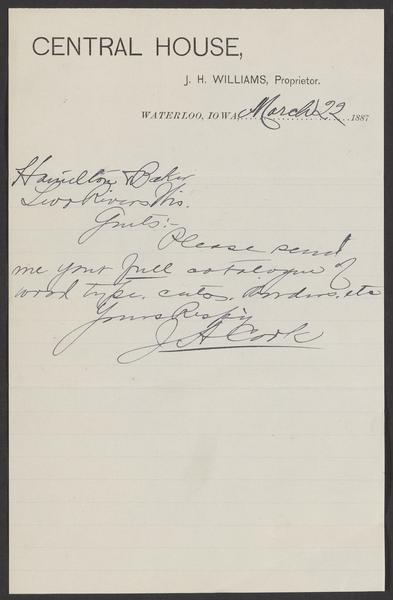 CENTRAL HOUSE,
J. H. WILLIAMS, Proprietor.
WATERLOO, IOWA, March 22 1887
Hamilton & Baker
Two Rivers Wis.
Gents:-
Please send
me your full catalogue of
wood type, cuts, borders, etc
Yours Resp'y
J A Cook